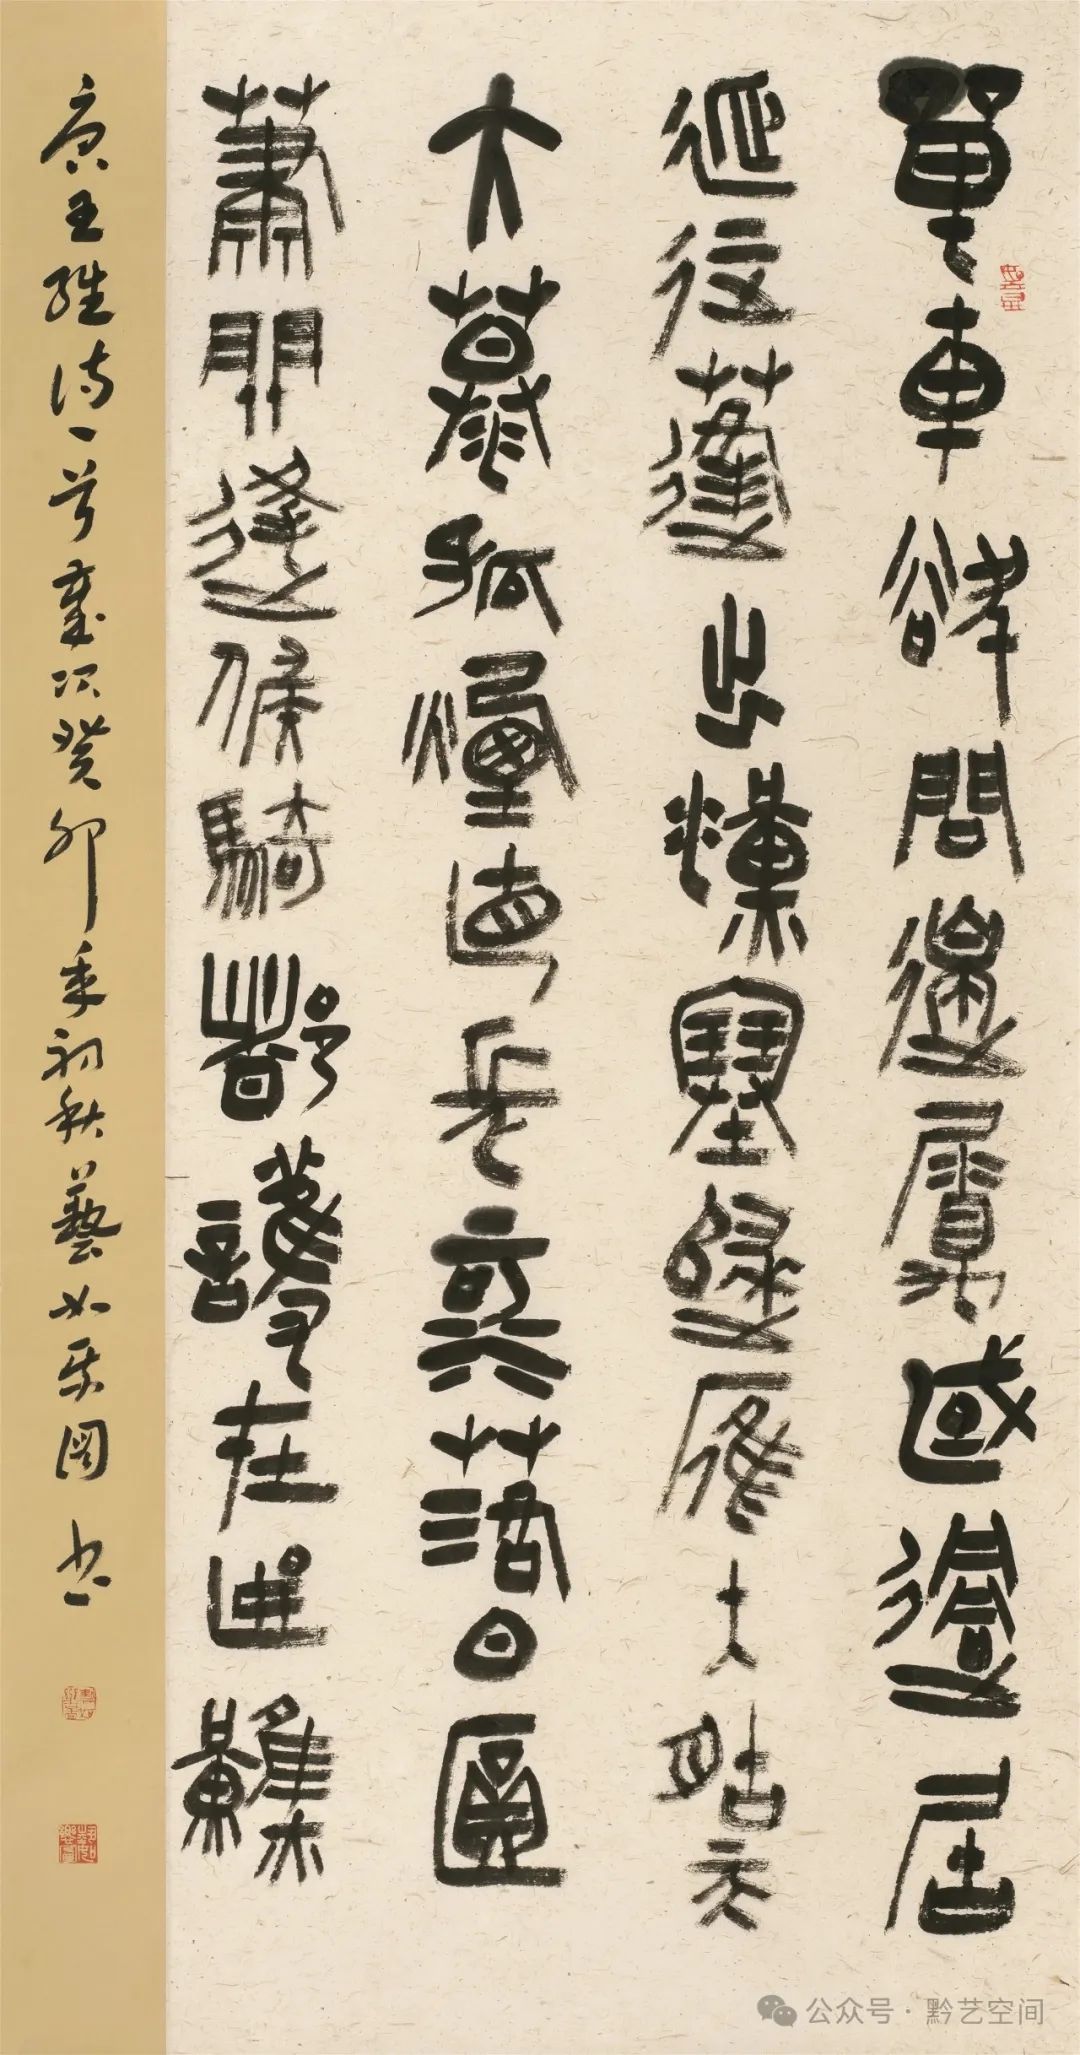 單車欲問邊屬國過居
延征蓬出漢塞歸雁入胡天
大漠孤煙直長河落日圓
蕭關逢候騎都護在燕然
唐王維詩一首歲次癸卯年初秋藝如樂書
公众号·黔艺空间